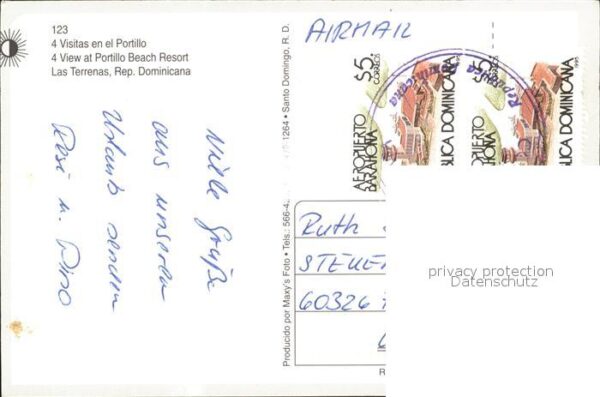 123
4 Visitas en el Portillo
4 View at Portillo Beach Resort
Las Terrenas, Rep. Dominicana
Viele Grüße
aus unserem
Urlaub senden
Rosi u. Dino
Producido por Maxy's Foto • Tels.: 566-4 1264 • Santo Domingo, R. D.
AIRMAIL
$5
CORREOS
AEROPUERTO
BARAHONA
REPUBLICA DOMINICANA
1995
$5
CORREOS
AEROPUERTO
BARAHONA
REPUBLICA DOMINICANA
1995
Republica Dominicana
Ruth
STEUE
60326
privacy protection
Datenschutz